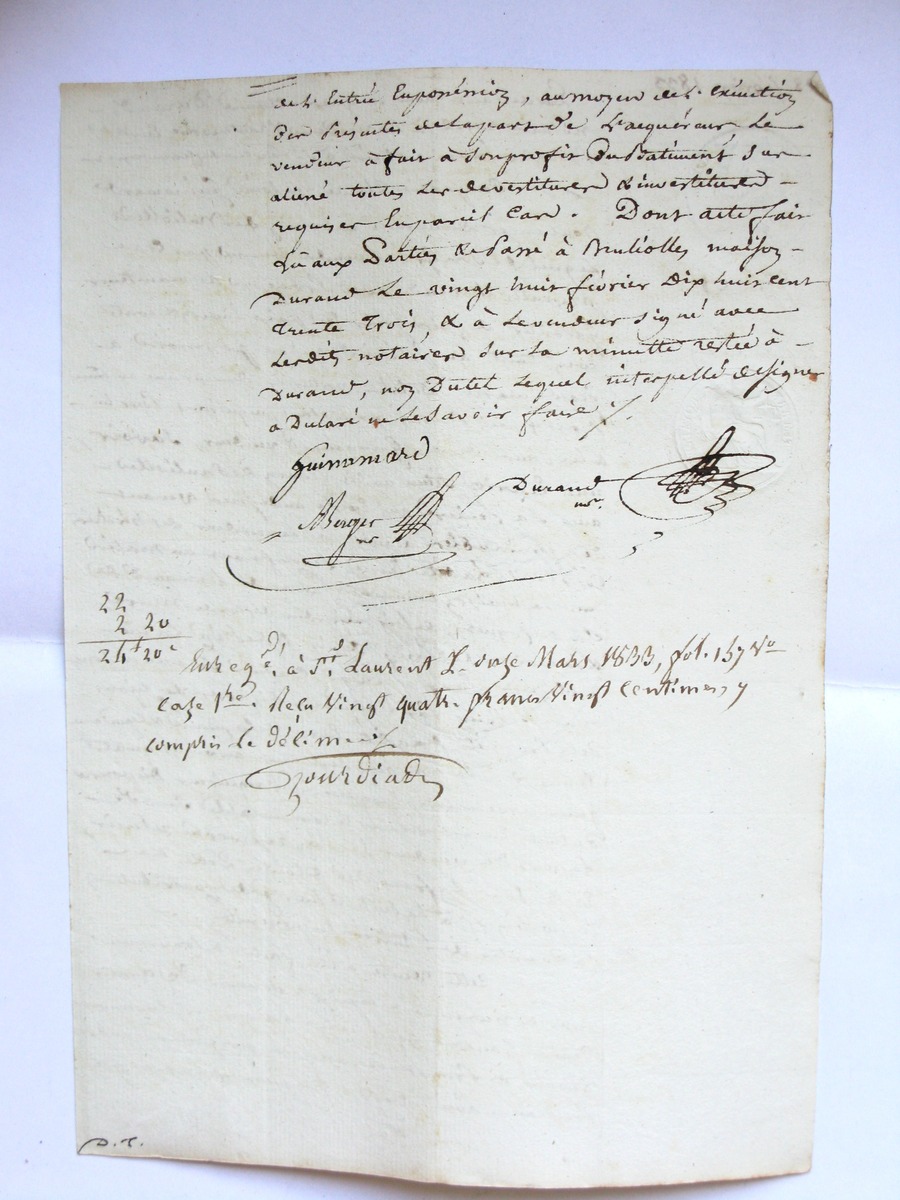 de l'Entrée Enposéssion, aumoyen de l'éxécution
Des Présentes delapart de l'acquéreur, Le
vendeur à fait à Sonprofit Du Batiment Sus-
aliéné toutes Les devestitures & investitures
requises Enpareil Cas. Dont acte fait
Lû aux Parties & Passé à Brulliolles maison
Durand Le vingt huit février Dix huit cent
Trente Trois, & à Levendeur Signé avec
Lesdits notaires Sur La minutte restée à
Durand, non Dutel Lequel interpellé deSigner
a Déclaré ne LeSavoir faire ./.
Guinamard
Durand
nre.
Berger
nre
22
2 20
24f 20c
Enregé. à St. Laurent L onze Mars 1833, fol. 157 Vo
Case 1re. Reçu Vingt quatre francs Vingt Centimes, y
compris le Décime
Gourdiad
D.T.